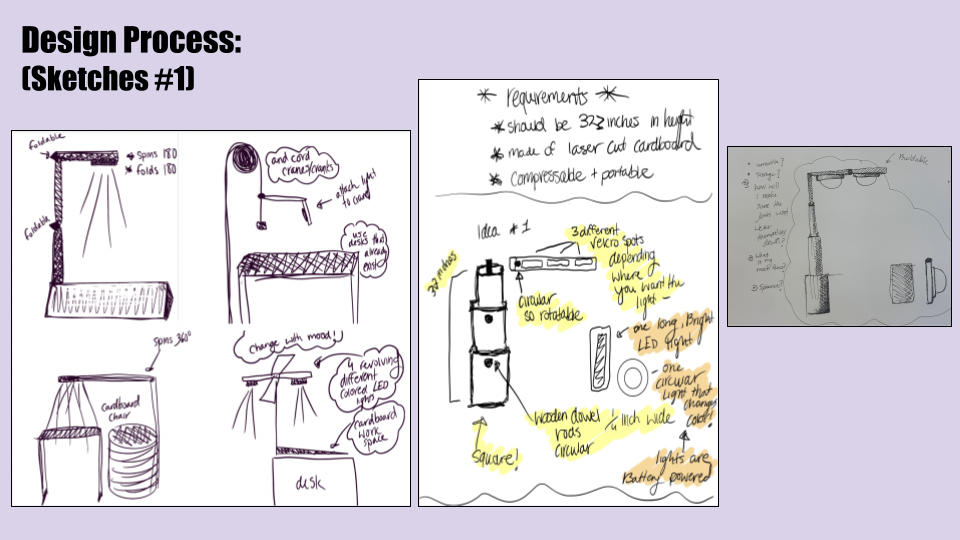 Design Process:
(Sketches #1)
foldable
* spins 180
* folds 180
foldable
and cord
attach light
to crane
use
desks that
already
exist
spins 360°
Cardboard
chair
change with mood!
4 revolving
different
colored LED
lights
cardboard
work
space
desk
* requirements *
* should be 32 inches in height
* made of laser cut cardboard
* compressable + portable
Idea #1
32 inches
3 different
velcro spots
depending
where
you want the
light -
circular
so rotatable
one long, Bright
LED light
- one
circular
light that
changes
color!
wooden dowel 1/4 inch wide
rods
circular
Square!
lights are
Battery powered
how will
I make
sure the